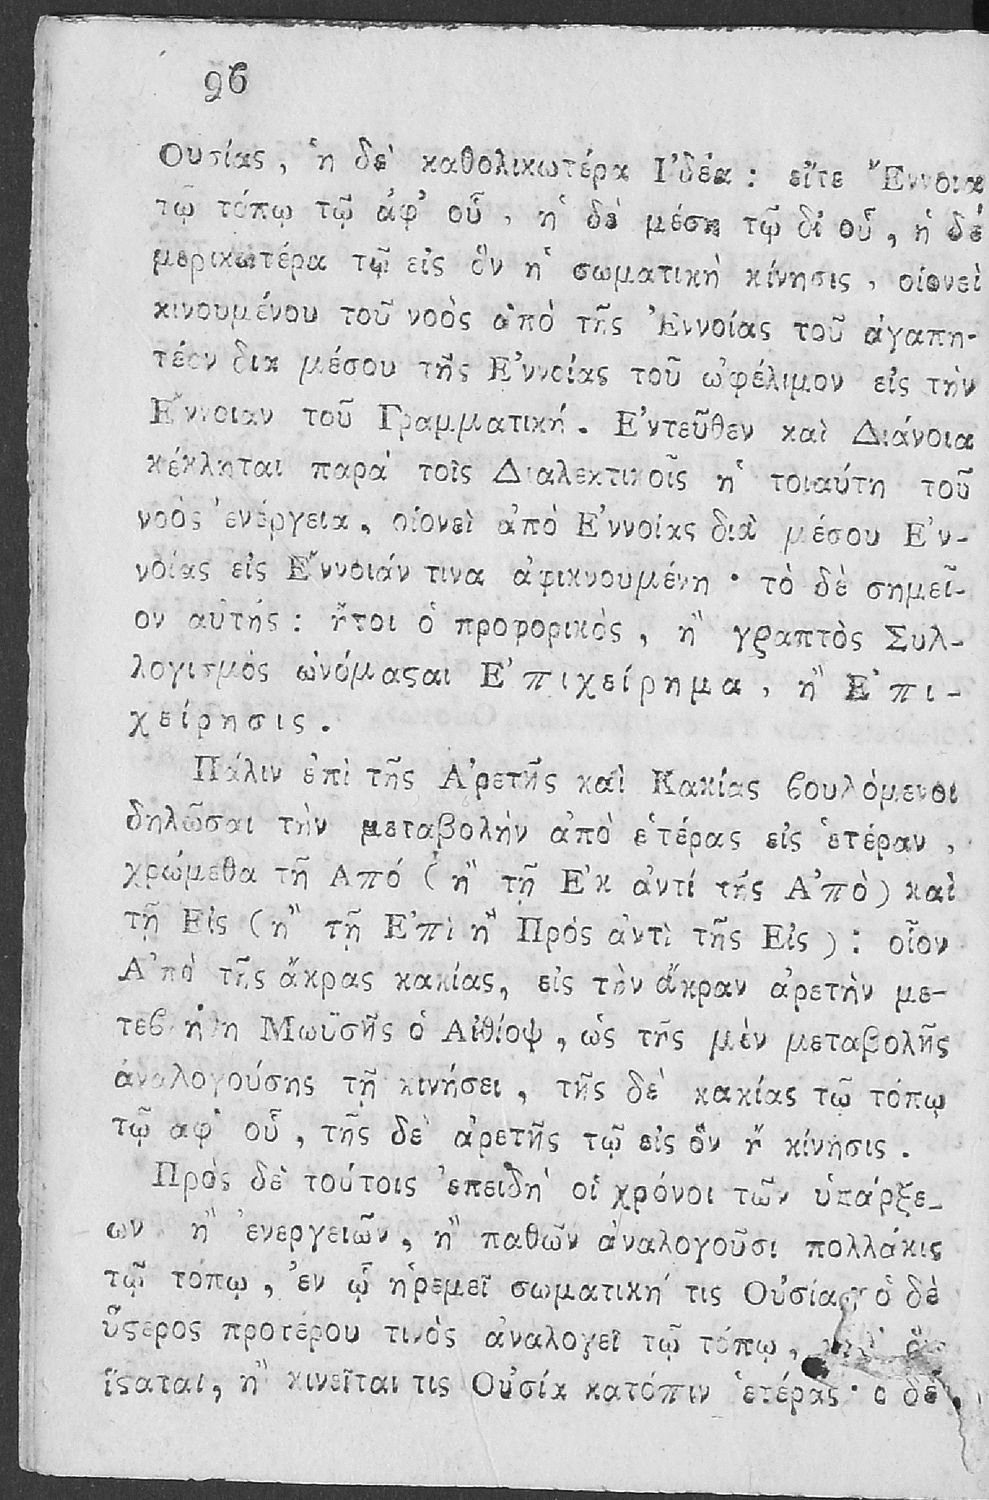 96
Ουσίας, ἡ δὲ καθολικωτέρα Ἰδέα: εἴτε Ἔννοια
τῷ τόπῳ τῷ ἀφ' οὗ, ἡ δὲ μέση τῷ δι οὗ, ἡ δὲ
μερικωτέρα τῷ εἰς ὃν ἡ σωματικὴ κίνησις, οἱονεὶ
κινουμένου τοῦ νοὸς ἀπὸ τῆς Ἐννοίας τοῦ ἀγαπη-
τέον δια μέσου τῆς Ἐννοίας τοῦ ὠφέλιμον εἰς τὴν
Ἔννοιαν τοῦ Γραμματική. Ἐντεῦθεν καὶ Διάνοια
κέκληται παρὰ τοῖς Διαλεκτικοῖς ἡ τοιαύτη τοῦ
νοὸς ἐνέργεια, οἱονεὶ ἀπὸ Ἐννοίας διὰ μέσου Ἐν-
νοίας εἰς Ἔννοιάν τινα ἀφικνουμένη · τὸ δὲ σημεῖ-
ον αὐτής: ἤτοι ὁ προφορικὸς, ἢ γραπτὸς Συλ-
λογισμὸς ὠνόμαςαι Ἐπιχείρημα, ἢ Ἐπι-
χείρησις.
Πάλιν ἐπὶ τῆς Ἀρετῆς καὶ Κακίας βουλόμενοι
δηλῶσαι τὴν μεταβολὴν ἀπὸ ἑτέρας εἰς ἑτέραν,
χρώμεθα τῇ Από (ἢ τῇ Ἐκ ἀντί τῆς Ἀπὸ) καὶ
τῇ Εἰς (ἢ τῇ Ἐπὶ ἢ Πρός ἀντὶ τῆς Εἰς): οἷον
Ἀπὸ τῆς ἄκρας κακίας, εἰς τὴν ἄκραν ἀρετὴν με-
τεβλήθη Μωϋσῆς ὁ Αἰθίοψ, ὡς τῆς μὲν μεταβολῆς
ἀναλογούσης τῇ κινήσει, τῆς δὲ κακίας τῷ τόπῳ
τῷ αφ' οὗ, τῆς δὲ ἀρετῆς τῷ εἰς ὃν ἡ κίνησις.
Πρὸς δὲ τούτοις ἐπειδὴ οἱ χρόνοι τῶν ὑπάρξε-
ων ἢ ἐνεργειῶν, ἢ παθῶν ἀναλογοῦσι πολλάκις
τῷ τόπῳ, ἐν ᾧ ἠρεμεῖ σωματική τις Οὐσία · ὁ δὲ
ὕςερος προτέρου τινὸς ἀναλογεῖ τῷ τόπῳ,
ἵςαται, ἢ κινεῖται τις Οὐσία κατόπιν ἑτέρας · ο δὲ